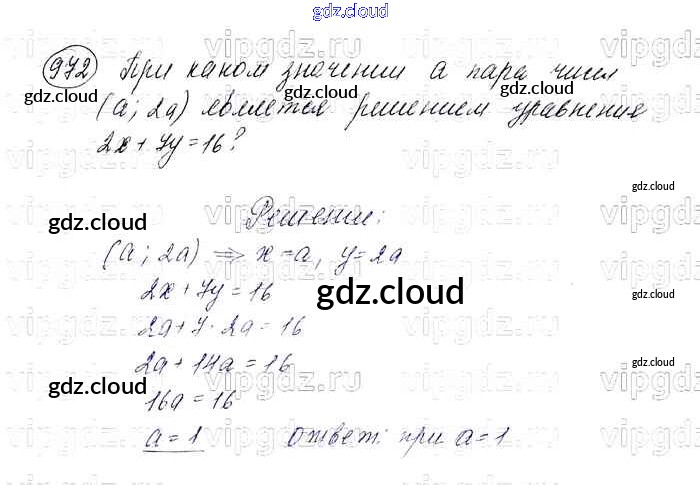 gdz.cloud
972 При каком значении a пара чисел
gdz.cloud gdz.cloud
(a; 2a) является решением уравнения
gdz.cloud gdz.cloud
2x + 7y = 16?
gdz.cloud
Решение:
gdz.cloud
(a; 2a) ⇒ x = a, y = 2a
2x + 7y = 16
gdz.cloud gdz.cloud
2a + 7 · 2a = 16
2a + 14a = 16
gdz.cloud
gdz.cloud
16a = 16
a = 1 ответ: при a = 1
vipgdz.ru vipgdz.ru vipgdz.ru vipgdz.ru